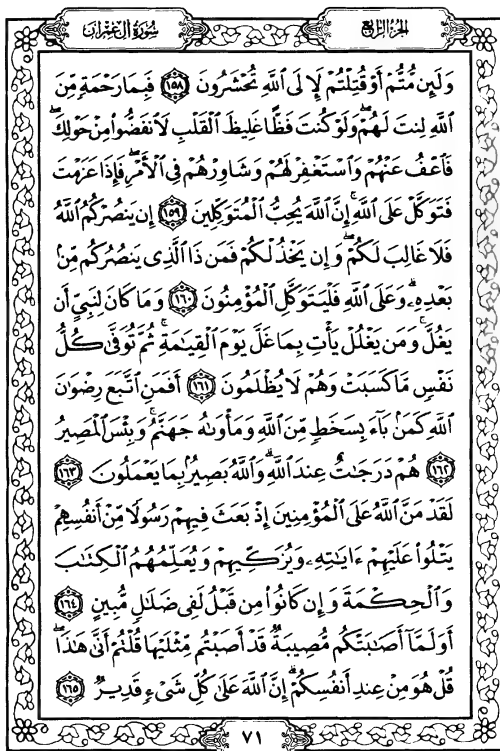 سُورَةُ آلِ عِمْرَان
الجُزْءُ الرَّابِعُ
وَلَئِن مُّتُّمْ أَوْ قُتِلْتُمْ لَإِلَى ٱللَّهِ تُحْشَرُونَ ١٥٨ فَبِمَا رَحْمَةٍ مِّنَ
ٱللَّهِ لِنتَ لَهُمْ ۖ وَلَوْ كُنتَ فَظًّا غَلِيظَ ٱلْقَلْبِ لَٱنفَضُّوا۟ مِنْ حَوْلِكَ ۖ
فَٱعْفُ عَنْهُمْ وَٱسْتَغْفِرْ لَهُمْ وَشَاوِرْهُمْ فِى ٱلْأَمْرِ ۖ فَإِذَا عَزَمْتَ
فَتَوَكَّلْ عَلَى ٱللَّهِ ۚ إِنَّ ٱللَّهَ يُحِبُّ ٱلْمُتَوَكِّلِينَ ١٥٩ إِن يَنصُرْكُمُ ٱللَّهُ
فَلَا غَالِبَ لَكُمْ ۖ وَإِن يَخْذُلْكُمْ فَمَن ذَا ٱلَّذِى يَنصُرُكُم مِّنۢ
بَعْدِهِۦ ۗ وَعَلَى ٱللَّهِ فَلْيَتَوَكَّلِ ٱلْمُؤْمِنُونَ ١٦٠ وَمَا كَانَ لِنَبِىٍّ أَن
يَغُلَّ ۚ وَمَن يَغْلُلْ يَأْتِ بِمَا غَلَّ يَوْمَ ٱلْقِيَـٰمَةِ ۚ ثُمَّ تُوَفَّىٰ كُلُّ
نَفْسٍ مَّا كَسَبَتْ وَهُمْ لَا يُظْلَمُونَ ١٦١ أَفَمَنِ ٱتَّبَعَ رِضْوَٰنَ
ٱللَّهِ كَمَنۢ بَآءَ بِسَخَطٍ مِّنَ ٱللَّهِ وَمَأْوَىٰهُ جَهَنَّمُ ۚ وَبِئْسَ ٱلْمَصِيرُ
١٦٢ هُمْ دَرَجَـٰتٌ عِندَ ٱللَّهِ ۗ وَٱللَّهُ بَصِيرٌۢ بِمَا يَعْمَلُونَ ١٦٣
لَقَدْ مَنَّ ٱللَّهُ عَلَى ٱلْمُؤْمِنِينَ إِذْ بَعَثَ فِيهِمْ رَسُولًا مِّنْ أَنفُسِهِمْ
يَتْلُوا۟ عَلَيْهِمْ ءَايَـٰتِهِۦ وَيُزَكِّيهِمْ وَيُعَلِّمُهُمُ ٱلْكِتَـٰبَ
وَٱلْحِكْمَةَ وَإِن كَانُوا۟ مِن قَبْلُ لَفِى ضَلَـٰلٍ مُّبِينٍ ١٦٤
أَوَلَمَّآ أَصَـٰبَتْكُم مُّصِيبَةٌ قَدْ أَصَبْتُم مِّثْلَيْهَا قُلْتُمْ أَنَّىٰ هَـٰذَا ۖ
قُلْ هُوَ مِنْ عِندِ أَنفُسِكُمْ ۗ إِنَّ ٱللَّهَ عَلَىٰ كُلِّ شَىْءٍ قَدِيرٌ ١٦٥
٧١